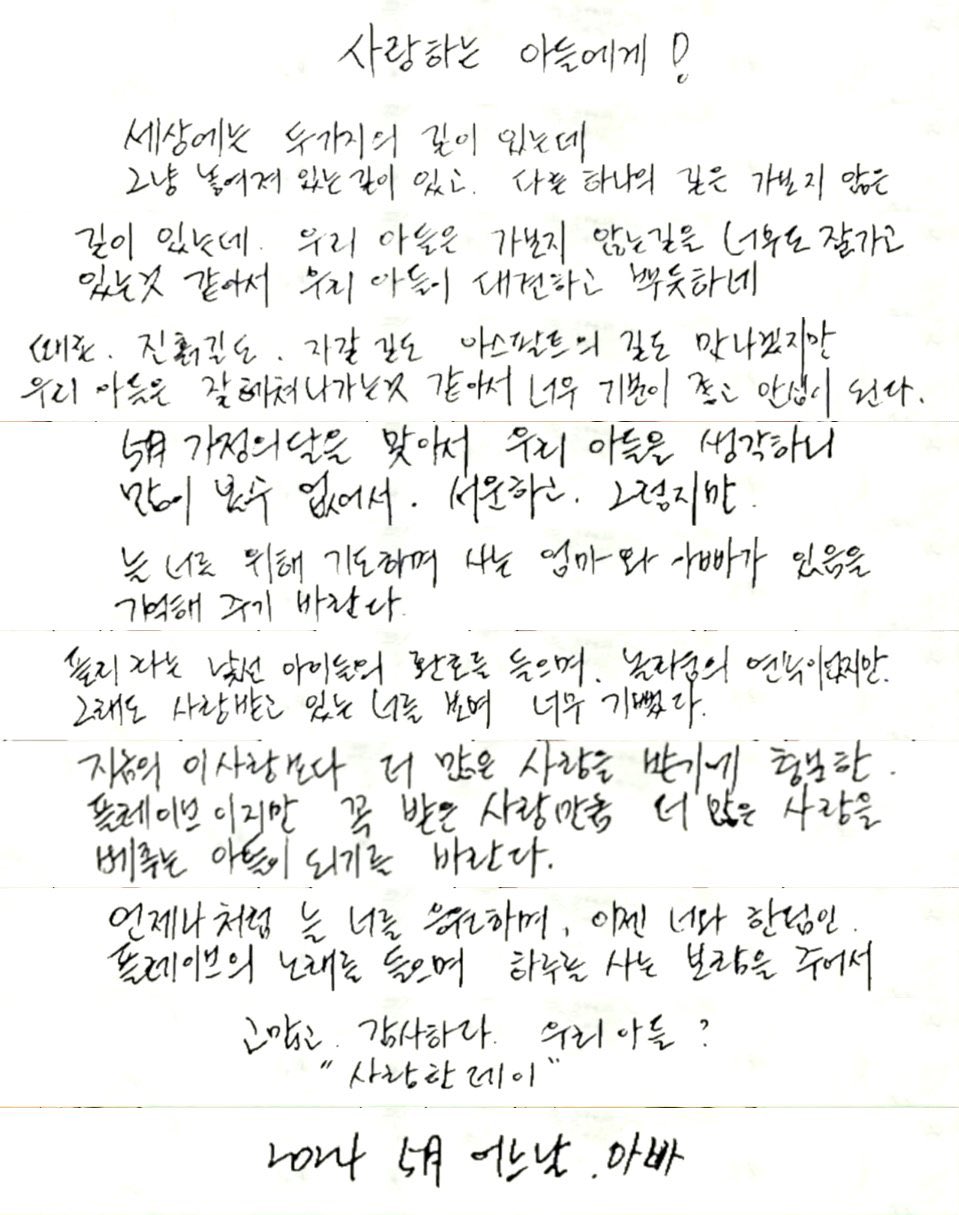 사랑하는 아들에게!
세상에는 두가지의 길이 있는데
그냥 놓여져 있는길이 있고. 다른 하나의 길은 가보지 않은
길이 있는데. 우리 아들은 가보지 않는길을 너무도 잘가고
있는것 같아서 우리 아들이 대견하고 뿌듯하네
때론. 진흙길도. 자갈길도 아스팔트의 길도 만나겠지만
우리 아들은 잘 헤쳐나가는것 같아서 너무 기분이 좋고 안심이 된다.
5月 가정의달을 맞아서 우리 아들을 생각하니
많이 볼수 없어서. 서운하고. 그렇지만.
늘 너를 위해 기도하며 사는 엄마와 아빠가 있음을
기억해 주기 바란다.
플리라는 낯선 아이들의 환호를 들으며. 놀라움의 연속이었지만.
그래도 사랑받고 있는 너를 보며 너무 기뻤다.
지금의 이사랑보다 더 많은 사랑을 받기에 충분한.
플레이브이지만 꼭 받은 사랑만큼 더 많은 사랑을
베푸는 아들이 되기를 바란다.
언제나처럼 늘 너를 응원하며, 이젠 너와 한팀인.
플레이브의 노래를 들으며 하루를 사는 보람을 주어서
고맙고. 감사하다. 우리아들?
"사랑한데이"
2024 5月 어느날. 아빠